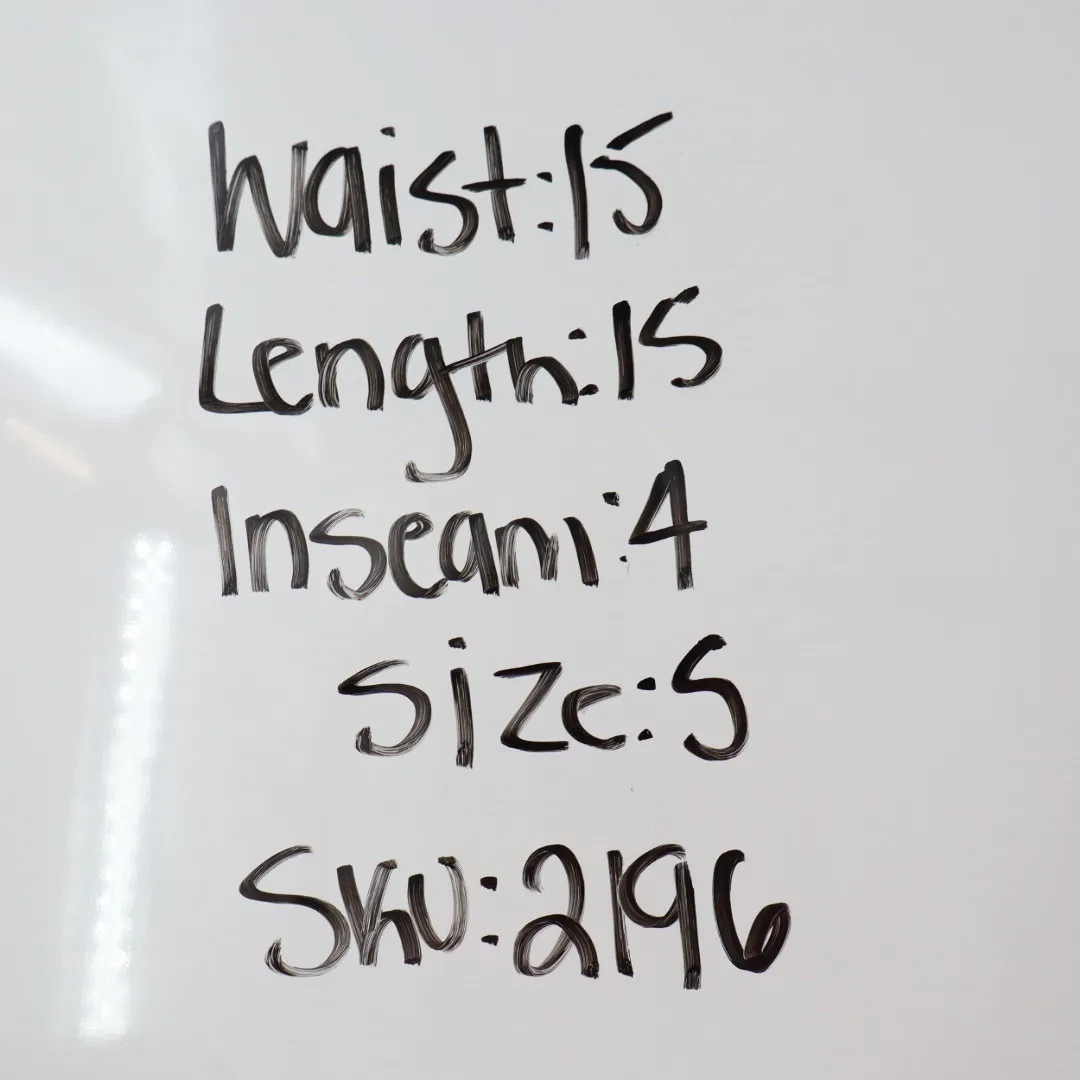 Waist:15
Length:15
Inseam:4
Size:S
SKU:2196